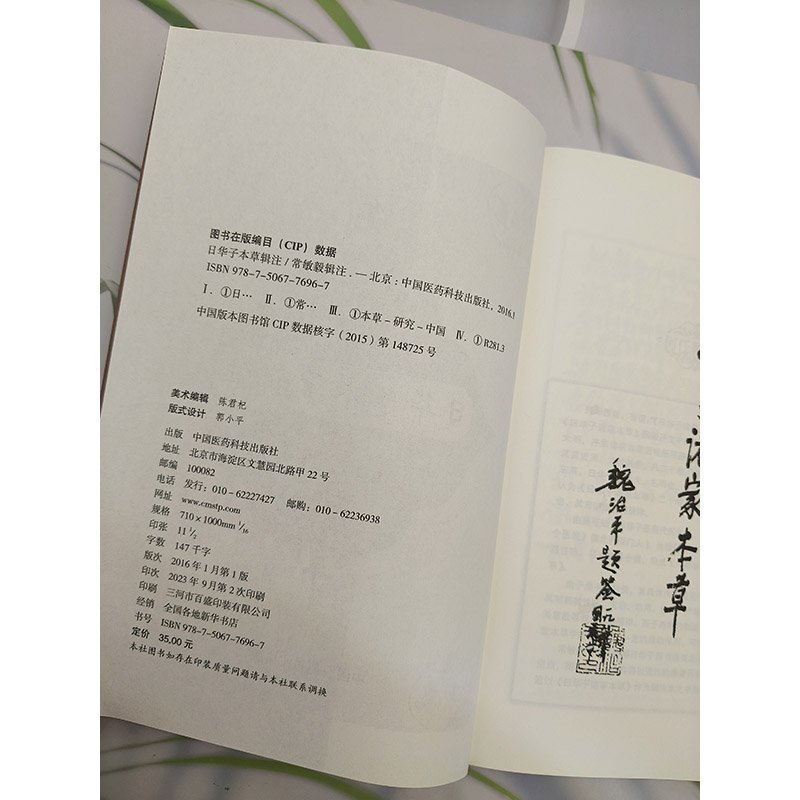 图书在版编目（CIP）数据
日华子本草辑注/常敏毅辑注．—北京：中国医药科技出版社，2016.1
ISBN 978-7-5067-7696-7
Ⅰ．①日… Ⅱ．①常… Ⅲ．①本草－研究－中国 Ⅳ．①R281.3
中国版本图书馆CIP数据核字（2015）第148725号
美术编辑 陈君杞
版式设计 郭小平
出版 中国医药科技出版社
地址 北京市海淀区文慧园北路甲22号
邮编 100082
电话 发行：010-62227427 邮购：010-62236938
网址 www.cmstp.com
规格 710×1000mm 1/16
印张 11 1/2
字数 147千字
版次 2016年1月第1版
印次 2023年9月第2次印刷
印刷 三河市百盛印装有限公司
经销 全国各地新华书店
书号 ISBN 978-7-5067-7696-7
定价 35.00元
本社图书如存在印装质量问题请与本社联系调换
诸家本草
题签